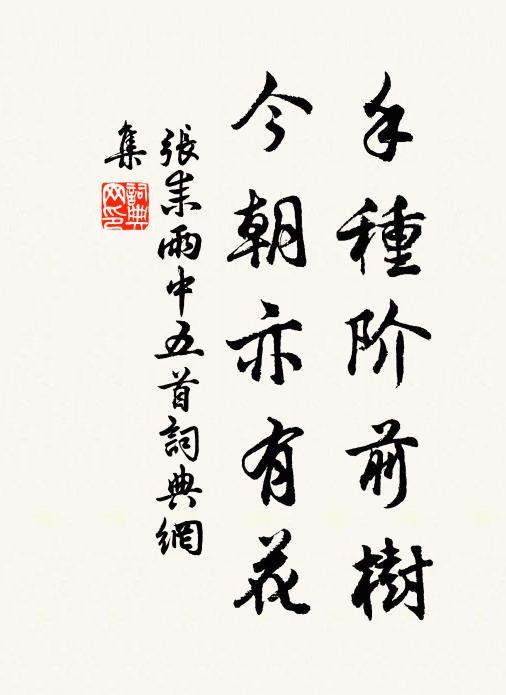 手種阶前樹
今朝亦有花
張耒雨中五首詞典網
集
詞典
网印